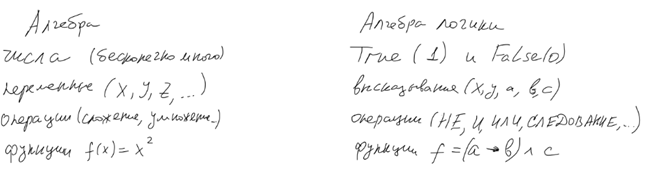 Алгебра
числа (бесконечно много)
переменные (x, y, z, ...)
операции (сложение, умножение..)
функции f(x) = x²
Алгебра логики
True (1) и False(0)
высказывания (x, y, a, b, c)
операции (НЕ, И, ИЛИ, СЛЕДОВАНИЕ,...)
функции f = (a → b) ∧ c